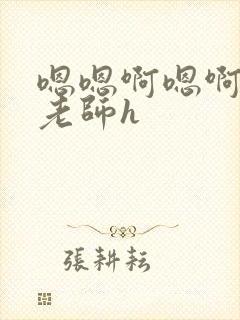 嗯嗯啊嗯啊
老師h
張耕耘